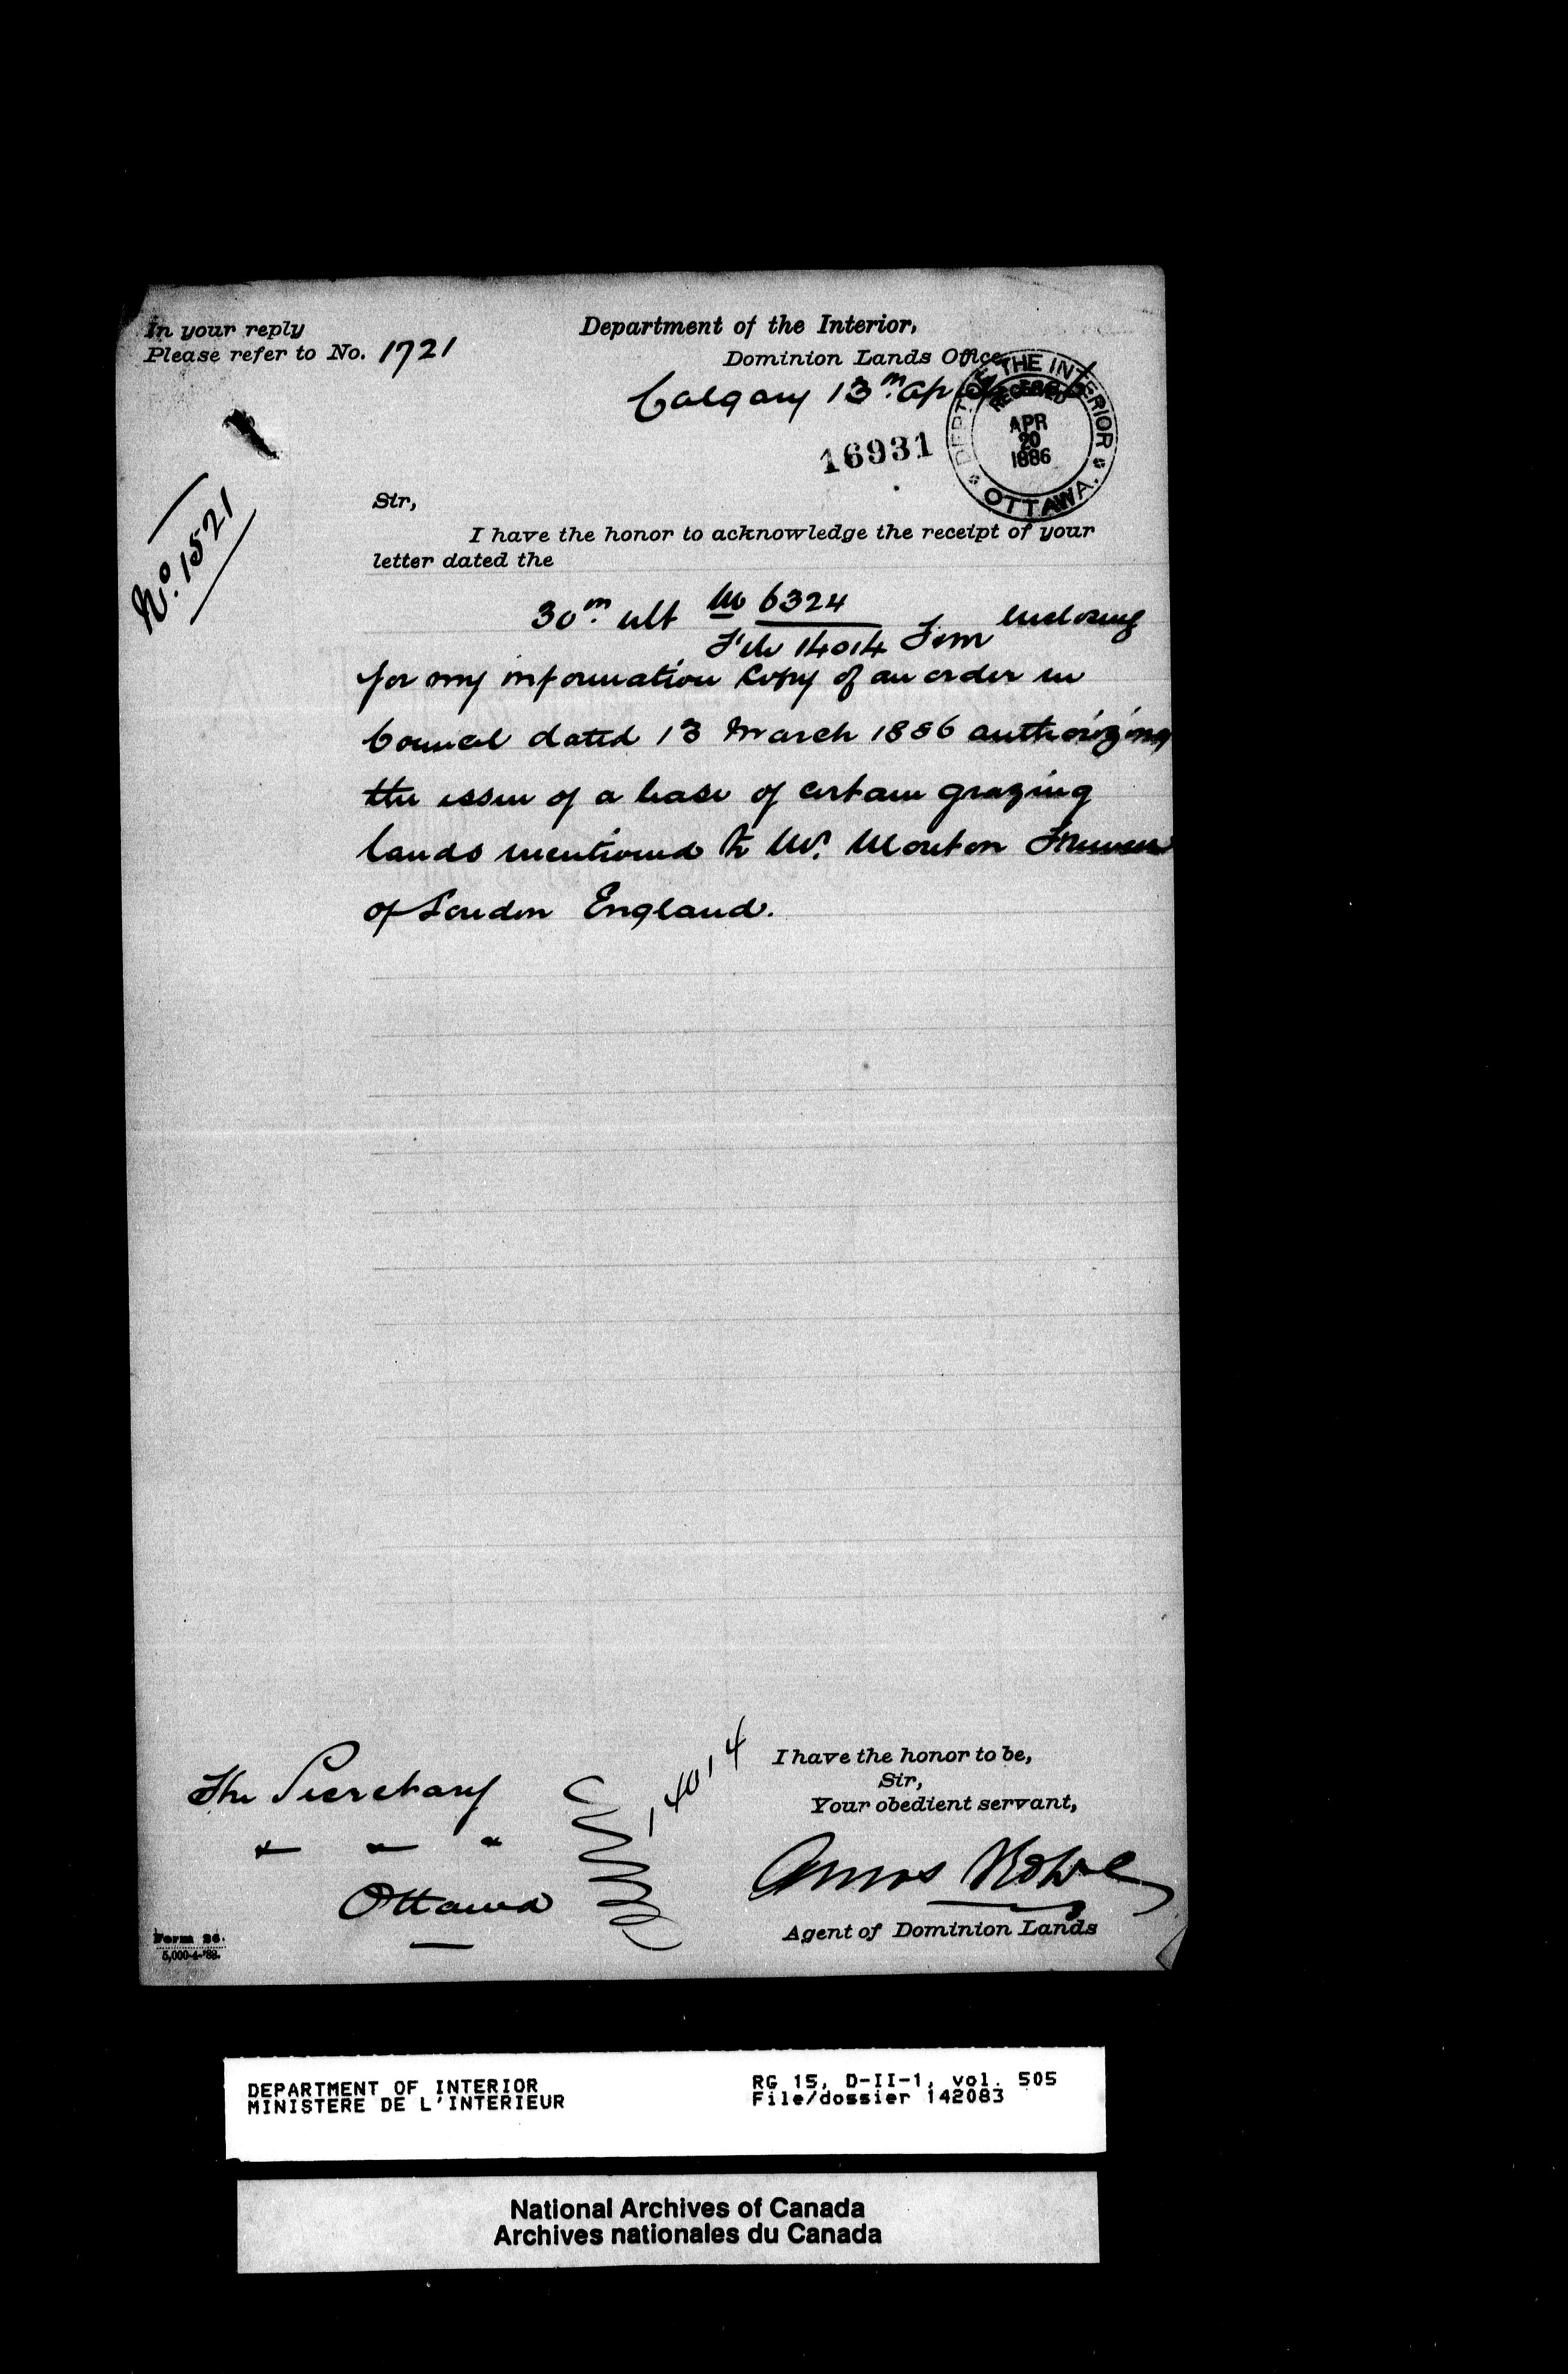 In your reply
Please refer to No. 1721
Department of the Interior,
Dominion Lands Office,
Calgary 13th Ap
16931
DEPT OF THE INTERIOR
RECEIVED
APR
20
1886
OTTAWA.
No. 1521
Sir,
I have the honor to acknowledge the receipt of your
letter dated the
30th ult No 6324 enclosing
File 14014
for my information Copy of an order in
Council dated 13 March 1886 authorizing
the issue of a lease of certain grazing
lands mentioned to Mr. Moreton Frewen
of London England.
I have the honor to be,
Sir,
Your obedient servant,
Amos Rowe
Agent of Dominion Lands
The Secretary
" " "
Ottawa
14014
Form 26.
5,000-4-'83.
DEPARTMENT OF INTERIOR
MINISTERE DE L'INTERIEUR
RG 15, D-II-1, vol. 505
File/dossier 142083
National Archives of Canada
Archives nationales du Canada